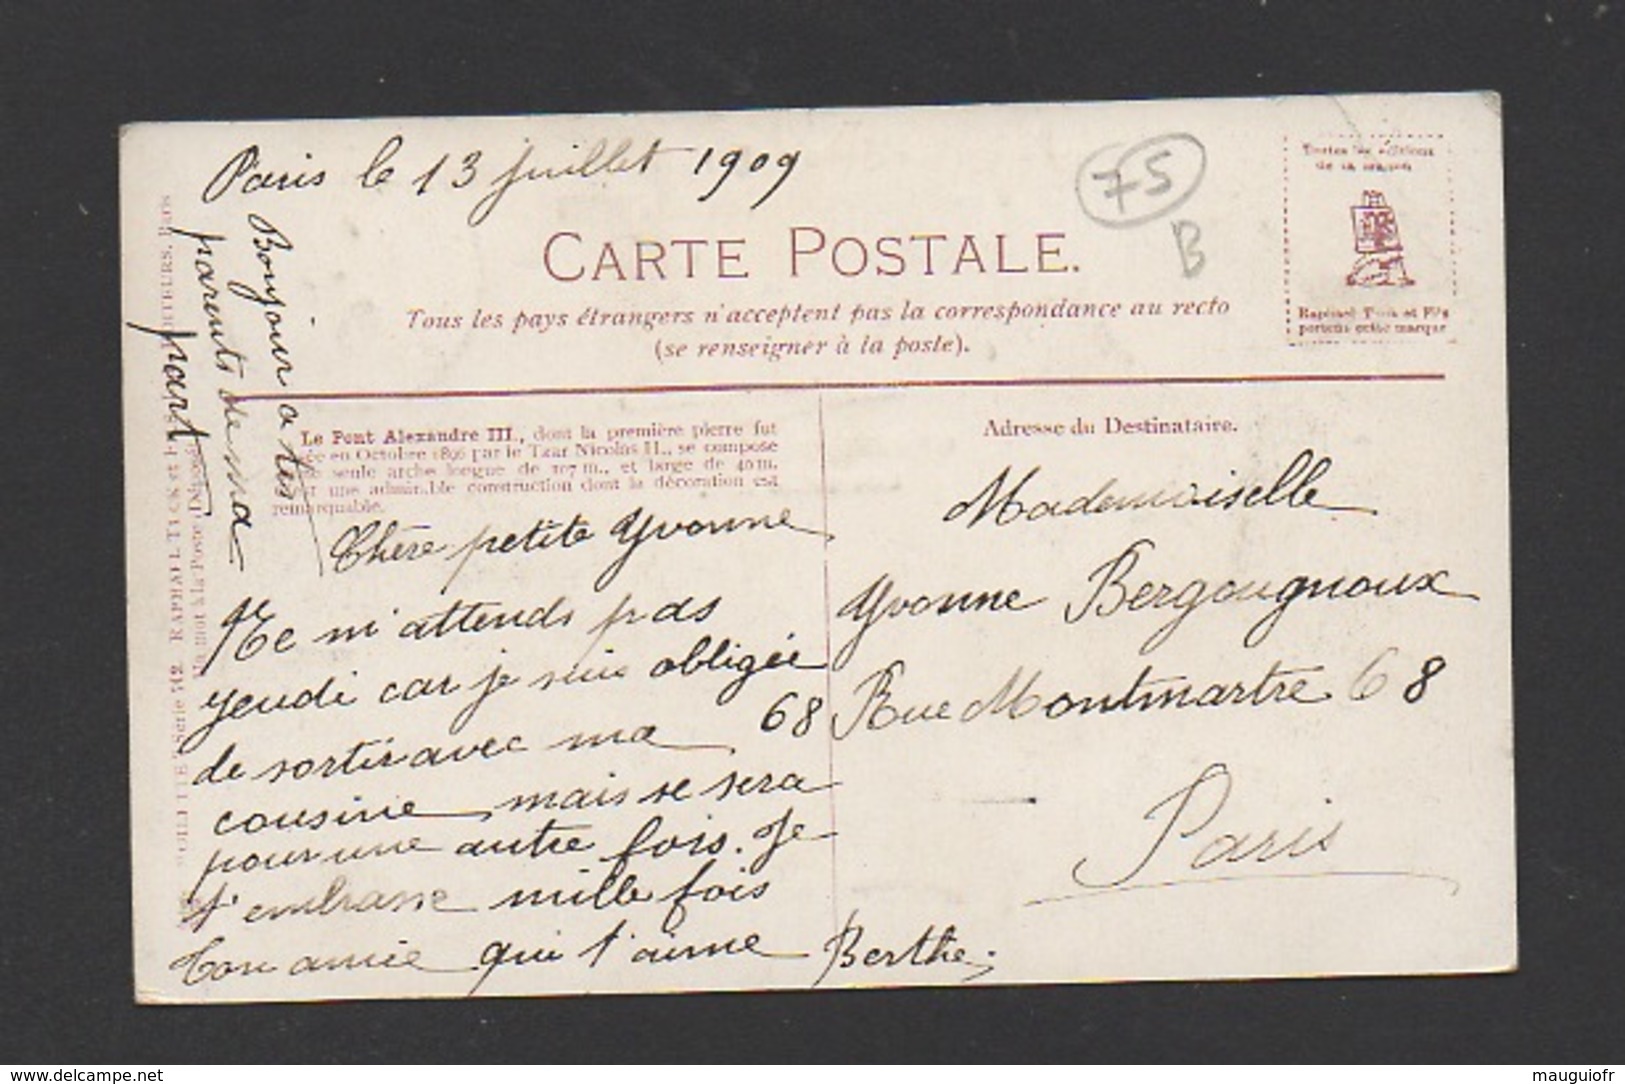 Paris le 13 juillet 1909
75
B
Toutes les éditions
de la maison
Raphael Tuck et Fils
portent cette marque
CARTE POSTALE.
Tous les pays étrangers n'acceptent pas la correspondance au recto
(se renseigner à la poste).
Bonjour a tes
parents de ma
part
Le Pont Alexandre III., dont la première pierre fut
en Octobre 1896 par le Tzar Nicolas II., se compose
seule arche longue de 107 m., et large de 40 m.
est une admirable construction dont la décoration est
remarquable.
Chère petite Yvonne
Ne m'attends pas
jeudi car je suis obligée
de sortir avec ma
cousine mais se sera
pour une autre fois. Je
t'embrasse mille fois
Ton amie qui t'aime Berthe.
Adresse du Destinataire.
Mademoiselle
Yvonne Bergougnoux
68 Rue Montmartre 68
Paris
Serie 742 RAPHAEL TUCK et Fils EDITEURS, Paris
Un mot à la Poste
delcampe.net
mauguiofr